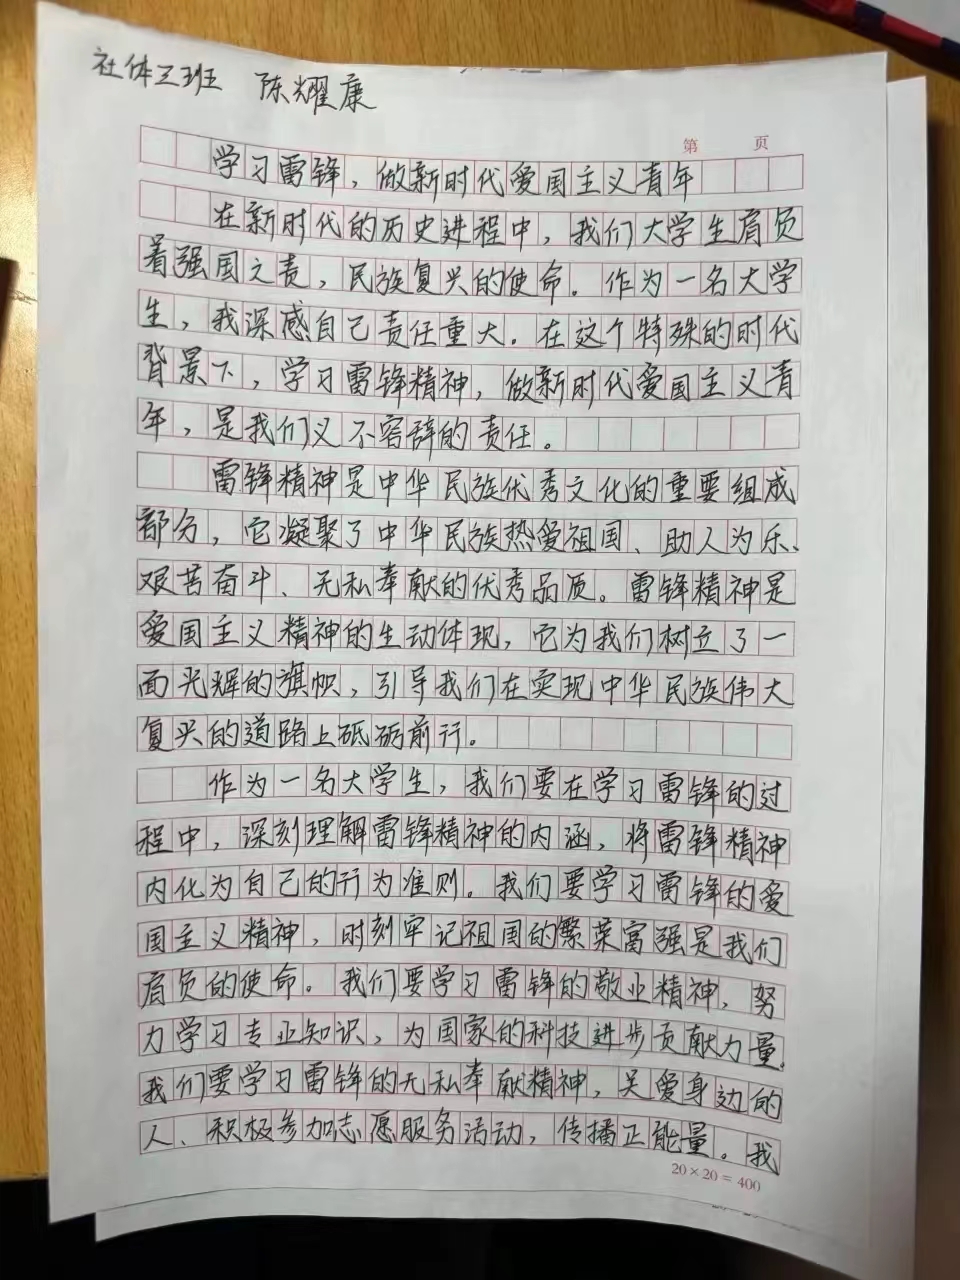 社体三班 陈耀康
第 页
学习雷锋，做新时代爱国主义青年
在新时代的历史进程中，我们大学生肩负
着强国之责，民族复兴的使命。作为一名大学
生，我深感自己责任重大。在这个特殊的时代
背景下，学习雷锋精神，做新时代爱国主义青
年，是我们义不容辞的责任。
雷锋精神是中华民族优秀文化的重要组成
部分，它凝聚了中华民族热爱祖国、助人为乐、
艰苦奋斗、无私奉献的优秀品质。雷锋精神是
爱国主义精神的生动体现，它为我们树立了一
面光辉的旗帜，引导我们在实现中华民族伟大
复兴的道路上砥砺前行。
作为一名大学生，我们要在学习雷锋的过
程中，深刻理解雷锋精神的内涵，将雷锋精神
内化为自己的行为准则。我们要学习雷锋的爱
国主义精神，时刻牢记祖国的繁荣富强是我们
肩负的使命。我们要学习雷锋的敬业精神，努
力学习专业知识，为国家的科技进步贡献力量。
我们要学习雷锋的无私奉献精神，关爱身边的
人、积极参加志愿服务活动，传播正能量。我
20×20=400